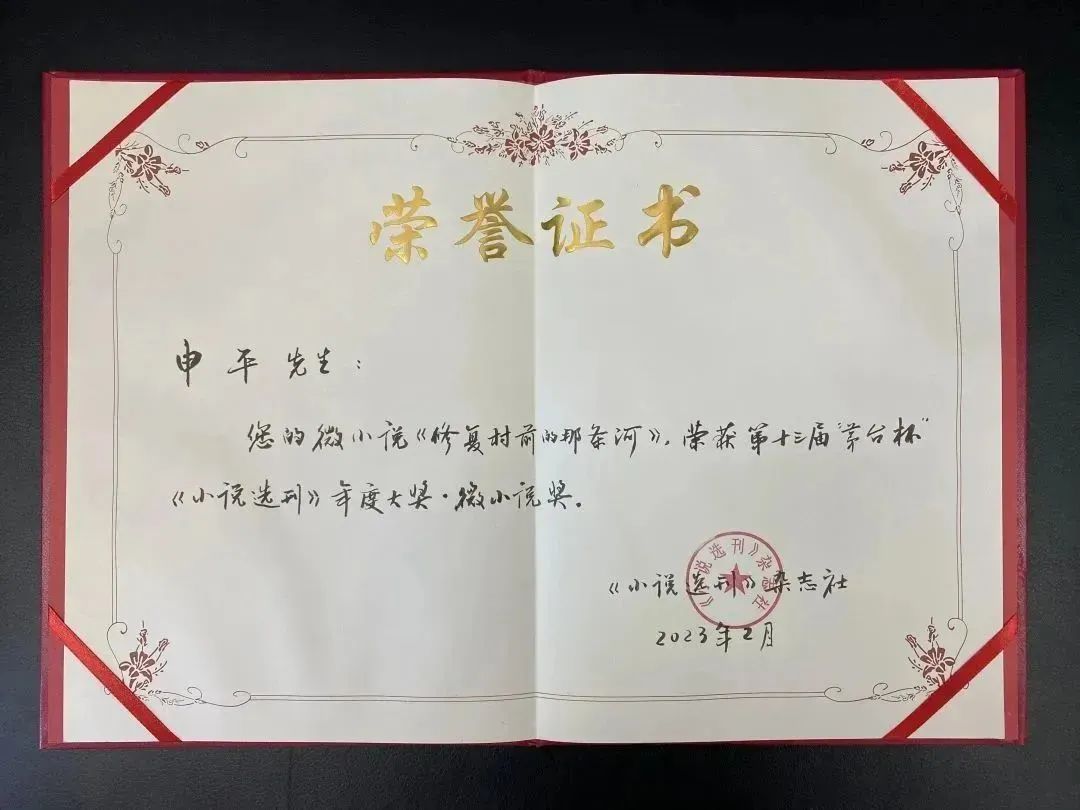 荣誉证书
申平先生：
您的微小说《修复村前的那条河》，荣获第十三届"茅台杯"
《小说选刊》年度大奖·微小说奖。
《小说选刊》杂志社
《小说选刊》杂志社
2023年2月